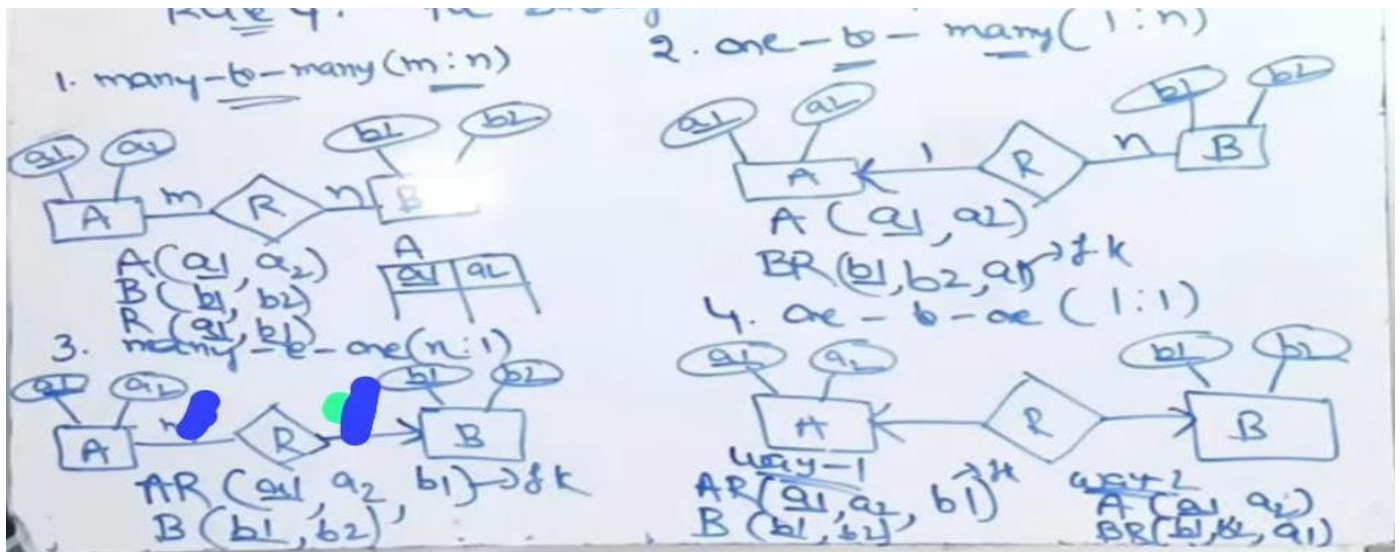 Rule 4:
1. many-to-many (m:n)
a1 a2 b1 b2
A m R n B
A(a1, a2)
B(b1, b2)
R(a1, b1)
A
a1 a2
2. one-to-many (1:n)
a1 a2 b1 b2
A 1 R n B
A(a1, a2)
BR(b1, b2, a1) → fk
3. many-to-one (n:1)
a1 a2 b1 b2
A R B
AR(a1, a2, b1) → fk
B(b1, b2)
4. one-to-one (1:1)
a1 a2 b1 b2
A R B
way-1
AR(a1, a2, b1) → fk
B(b1, b2)
way-2
A(a1, a2)
BR(b1, b2, a1)